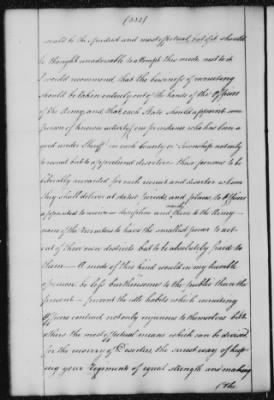 (332)
would be the speediest and most effectual, but if it should
be thought unadvisable to attempt this mode next to it
I would recommend, that the business of recruiting
should be taken entirely out of the hands of the Officers
of the Army, and that each State should appoint some
person of known activity &
under Sheriff in each County or Township not only
to recruit but to apprehend deserters these persons to be
liberally rewarded for each recruit and deserter whom
they shall deliver at stated periods and places, to Officers
appointed to receive discipline and march them to the Army.
none of the recruiters to have the smallest power to act
out of their own districts but to be absolutely fixed to
them — A mode of this kind would in my humble
opinion be less burthensome to the public than the
present — prevent the idle habits which recruiting
Officers contract not only injurious to themselves but
others the most effectual means which can be devised
for the recovery of Deserters the surest way of keep
ing your Regiments of equal strength and making